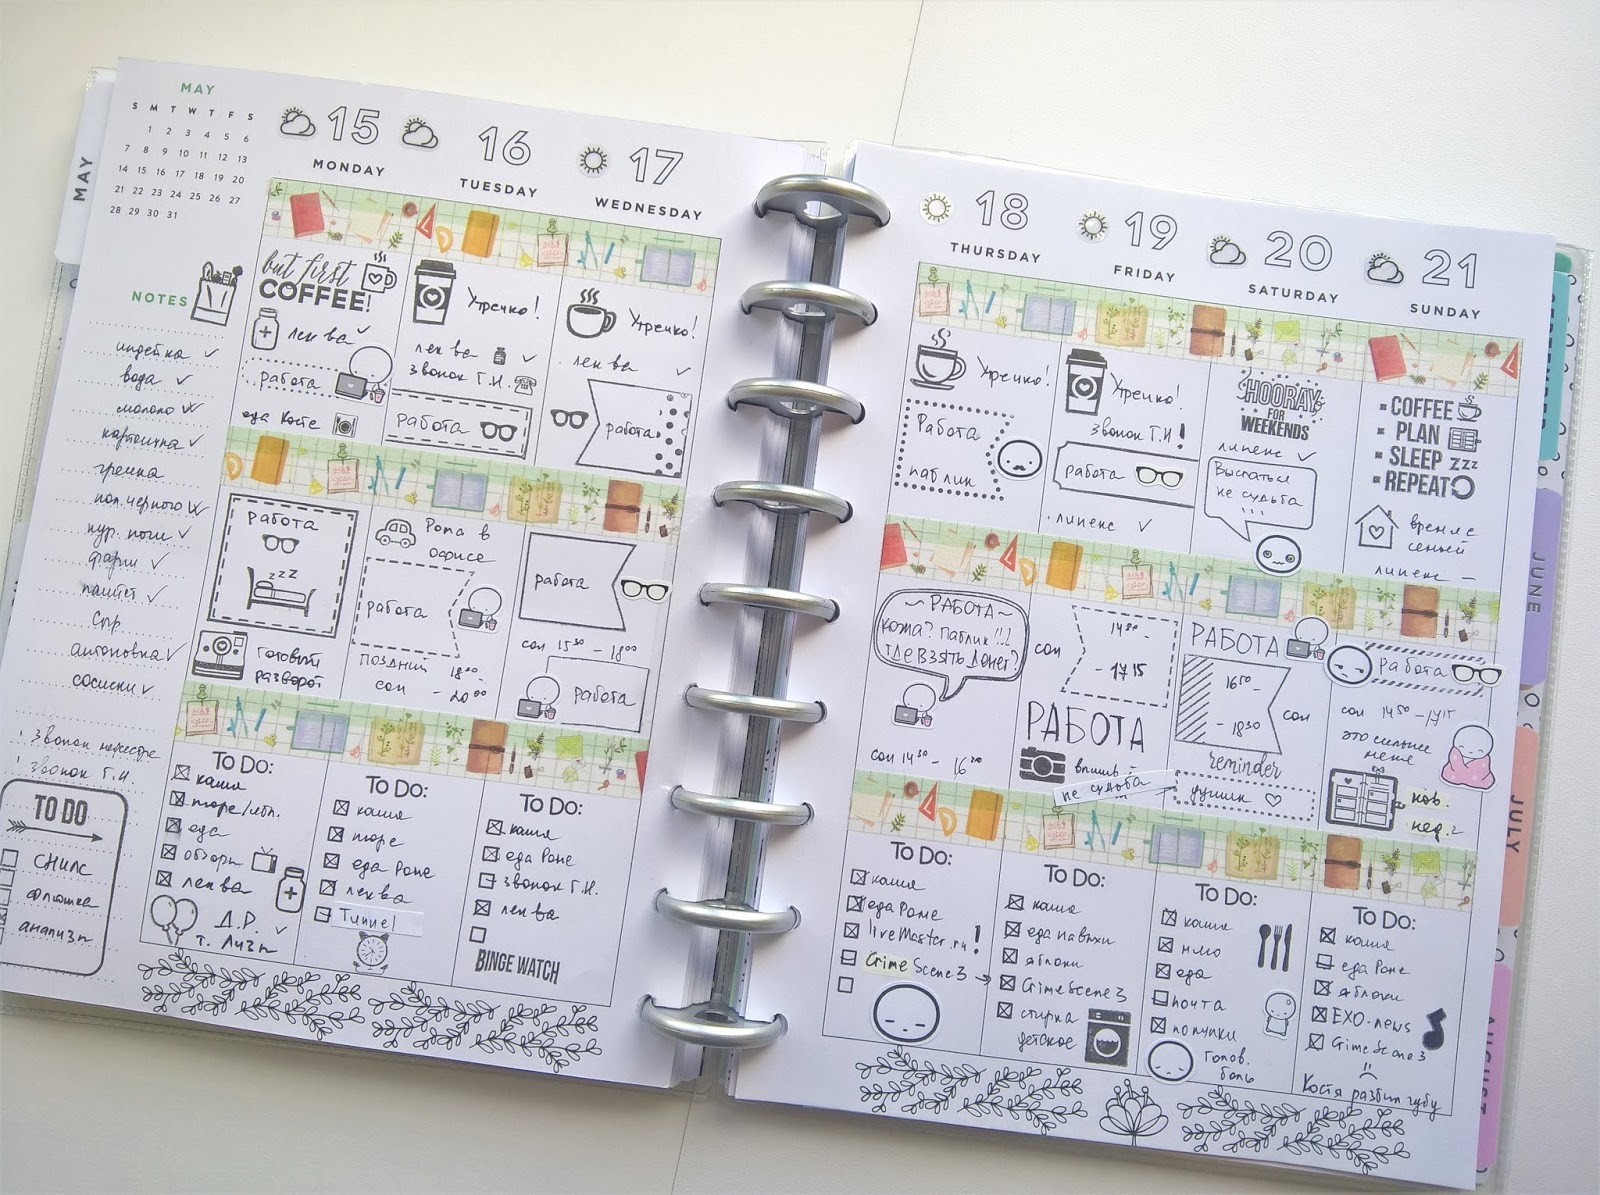 MAY
MAY
S M T W T F S
1 2 3 4 5 6
7 8 9 10 11 12 13
14 15 16 17 18 19 20
21 22 23 24 25 26 27
28 29 30 31
NOTES
индейка
вода
молоко
картошка
гречка
кур. ноги
фарш
паштет
сосиски
звонок Г.И.
TO DO
СНИЛС
анализы
15
MONDAY
but first
COFFEE!
лек ва
работа
еда Косте
работа
zzz
готовый
разворот
TO DO:
каша
пюре/ябл.
еда
обзоры
лек ва
Д.Р.
т. Лизы
16
TUESDAY
Утречко!
лек ва
звонок Г.И.
работа
Рома в
офисе
работа
поздний
сон
18:00 -
- 20:00
TO DO:
каша
пюре
еда Роме
лек ва
Tunnel
17
WEDNESDAY
Утречко!
лек ва
работа
работа
сон 15 30 - 18 00
работа
TO DO:
каша
еда Роме
звонок Г.И.
лек ва
BINGE WATCH
18
THURSDAY
Утречко!
Работа
паблик
~ РАБОТА ~
кожа? Паблик!!!
где взять денег?
сон 14 30 - 16
TO DO:
каша
еда Роме
liveMaster.ru!
Crime Scene 3
19
FRIDAY
Утречко!
звонок Г.И!
работа
липекс
сон
- 17 15
РАБОТА
не судьба
TO DO:
каша
яблоки
Crime Scene 3
стирка
детское
20
SATURDAY
HOORAY
FOR
WEEKENDS
липекс
Выспаться
не судьба
!!!
РАБОТА
16 50 -
- 18 30
сон
reminder
TO DO:
каша
еда
почта
покупки
голов.
боль
21
SUNDAY
COFFEE
PLAN
SLEEP zzz
REPEAT
время с
семьей
липекс -
Работа
сон 14 50 - 17 15
это сильнее
меня
нов.
нед.
TO DO:
каша
еда Роме
яблоки
EXO-news
Crime Scene 3
Костя разбил губу
JUNE
JULY
AUGUST